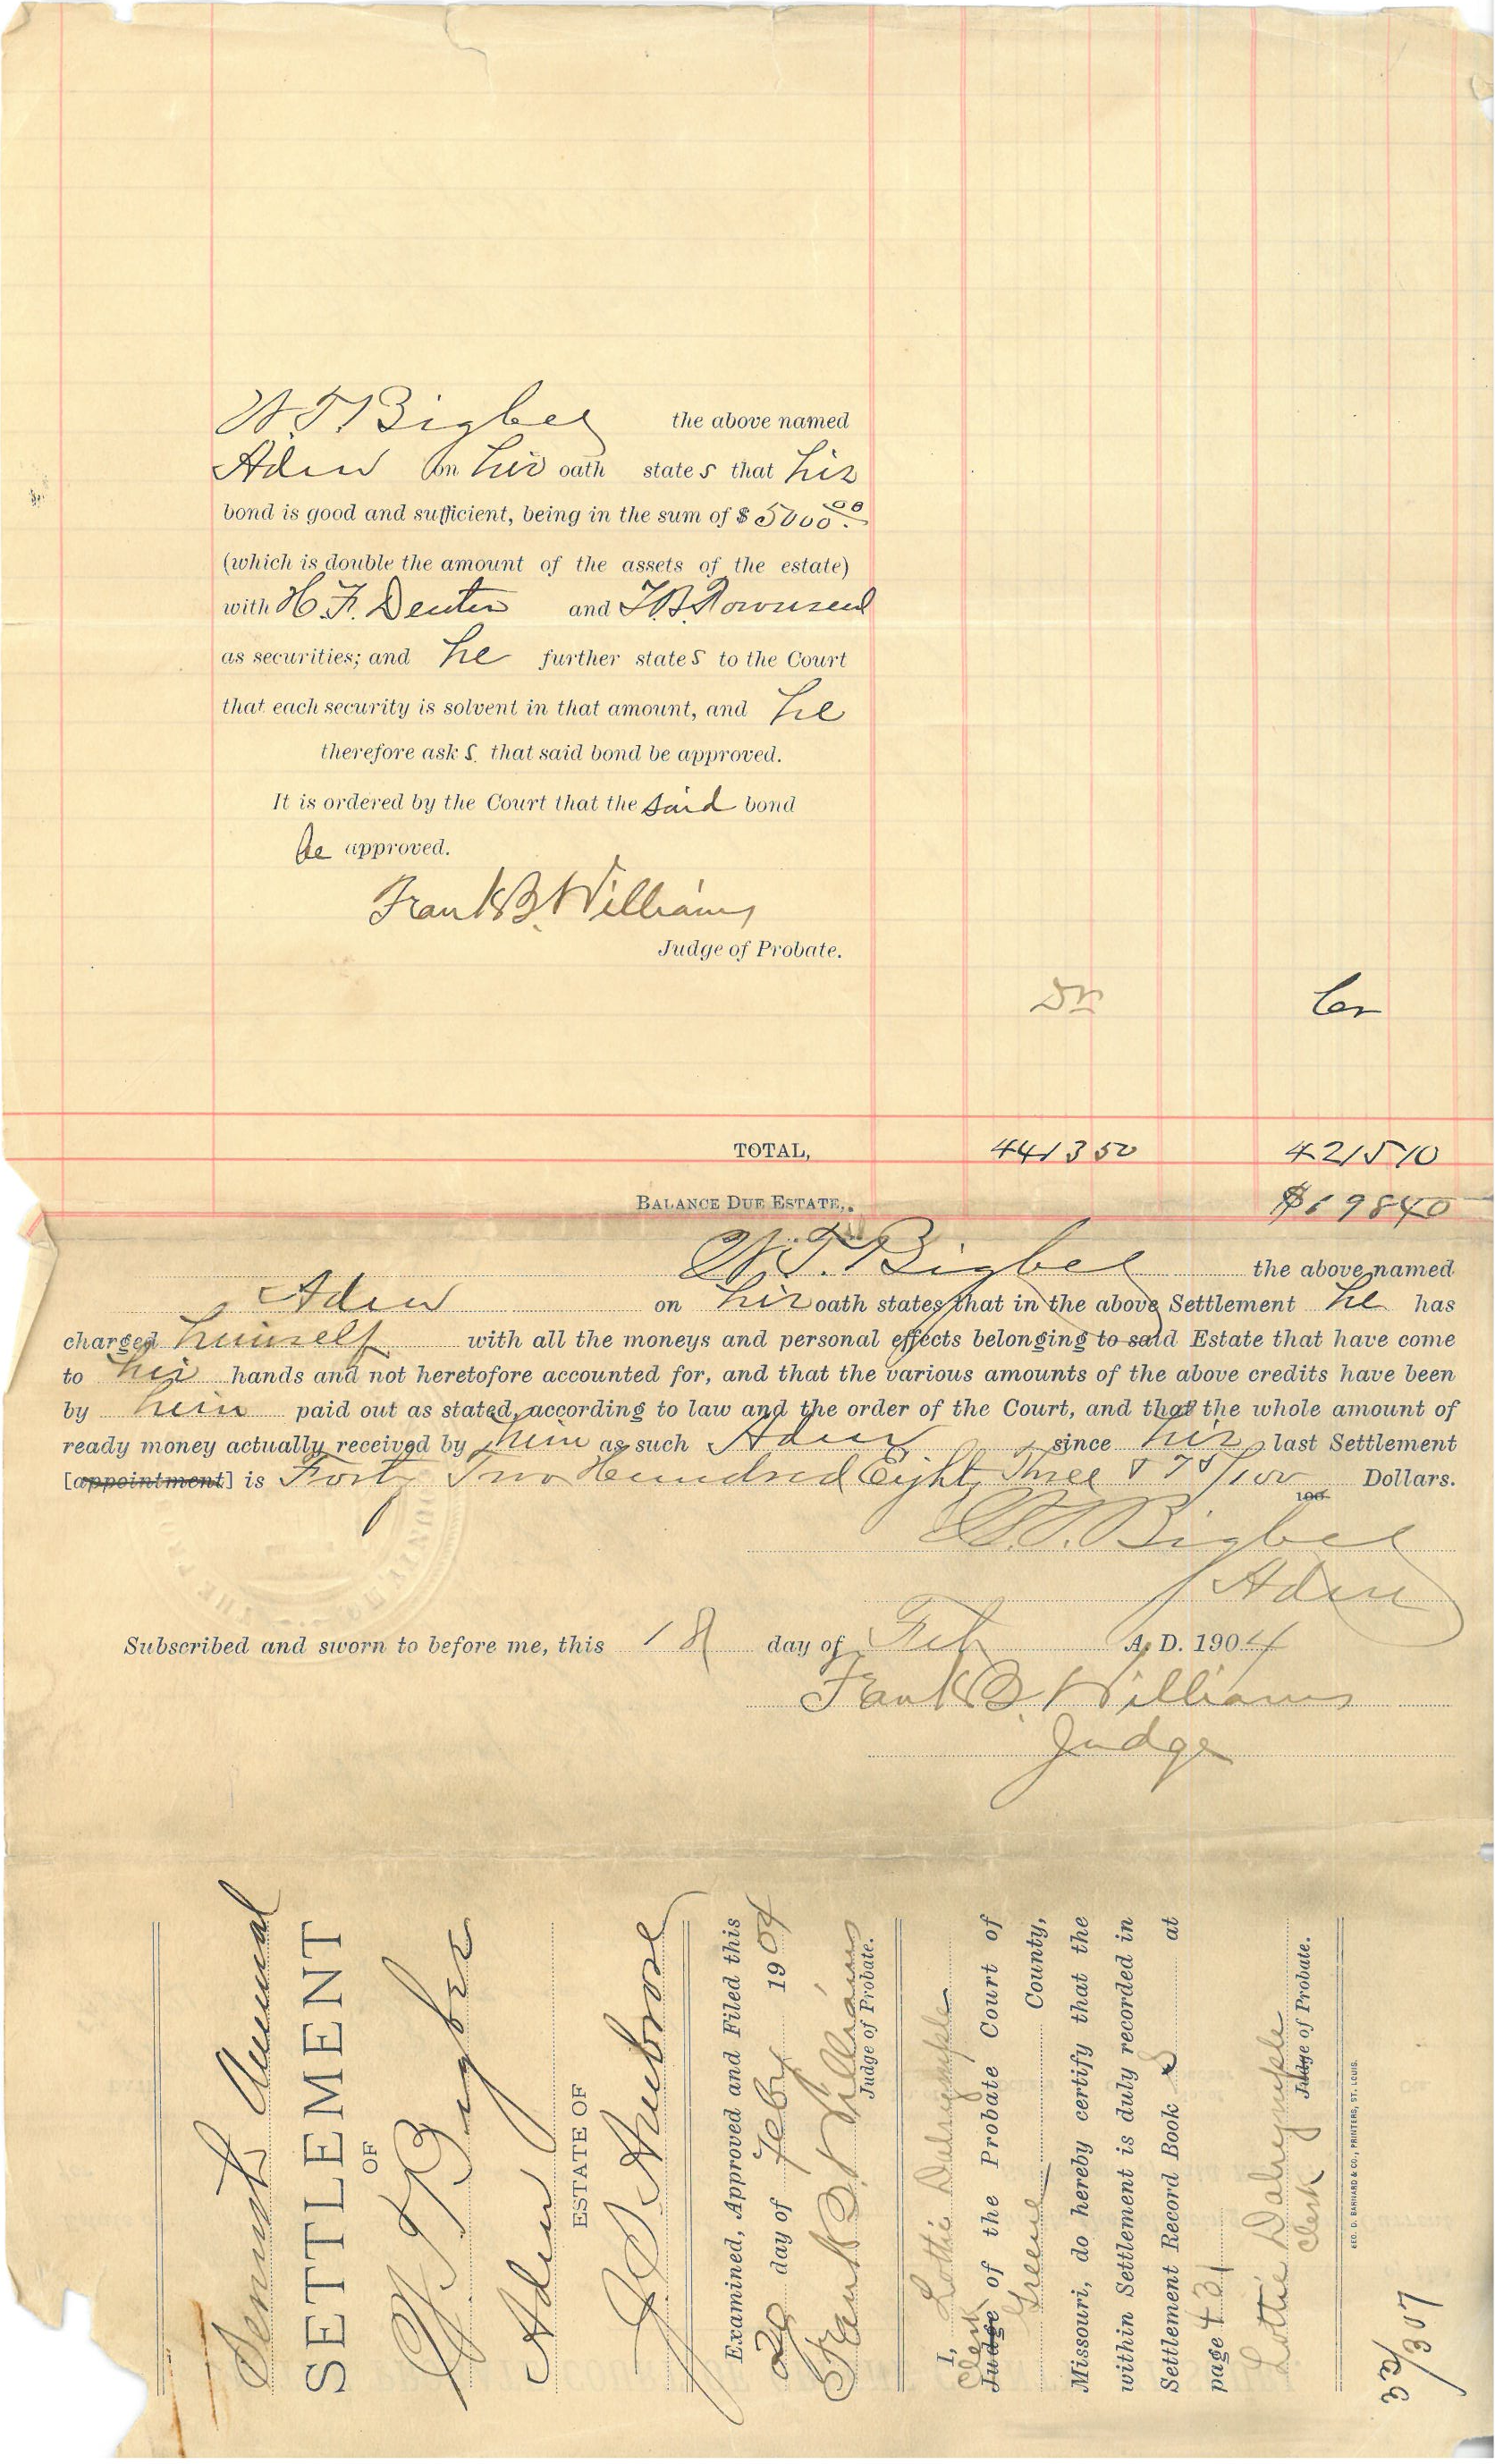 W.T. Bigbee the above named
Admr on his oath states that his
bond is good and sufficient, being in the sum of $5000.00
(which is double the amount of the assets of the estate)
with H.F. Denton and T.B. Townsend
as securities; and he further states to the Court
that each security is solvent in that amount, and he
therefore asks that said bond be approved.
It is ordered by the Court that the said bond
be approved.
Frank B. Williams
Judge of Probate.
Dr Cr
TOTAL, 4413 50 4215 10
BALANCE DUE ESTATE,. $198 40
W.T. Bigbee the above named
Admr on his oath states that in the above Settlement he has
charged himself with all the moneys and personal effects belonging to said Estate that have come
to his hands and not heretofore accounted for, and that the various amounts of the above credits have been
by him paid out as stated, according to law and the order of the Court, and that the whole amount of
ready money actually received by him as such Admr since his last Settlement
[appointment] is Forty Two Hundred Eighty Three & 75/100 100 Dollars.
W.T. Bigbee
Admr
Subscribed and sworn to before me, this 18 day of Feb A. D. 1904
Frank B. Williams
Judge
Annual
SETTLEMENT
OF
W.T. Bigbee
Admr
ESTATE OF
J.S. Ambrose
Examined, Approved and Filed this
20 day of Feby 1904
Frank B. Williams
Judge of Probate.
I, Lottie Dalrymple
Clerk
Judge of the Probate Court of
Greene County,
Missouri, do hereby certify that the
within Settlement is duly recorded in
Settlement Record Book S at
page 431
Lottie Dalrymple
Clerk Judge of Probate.
GEO. D. BARNARD & CO., PRINTERS, ST. LOUIS.